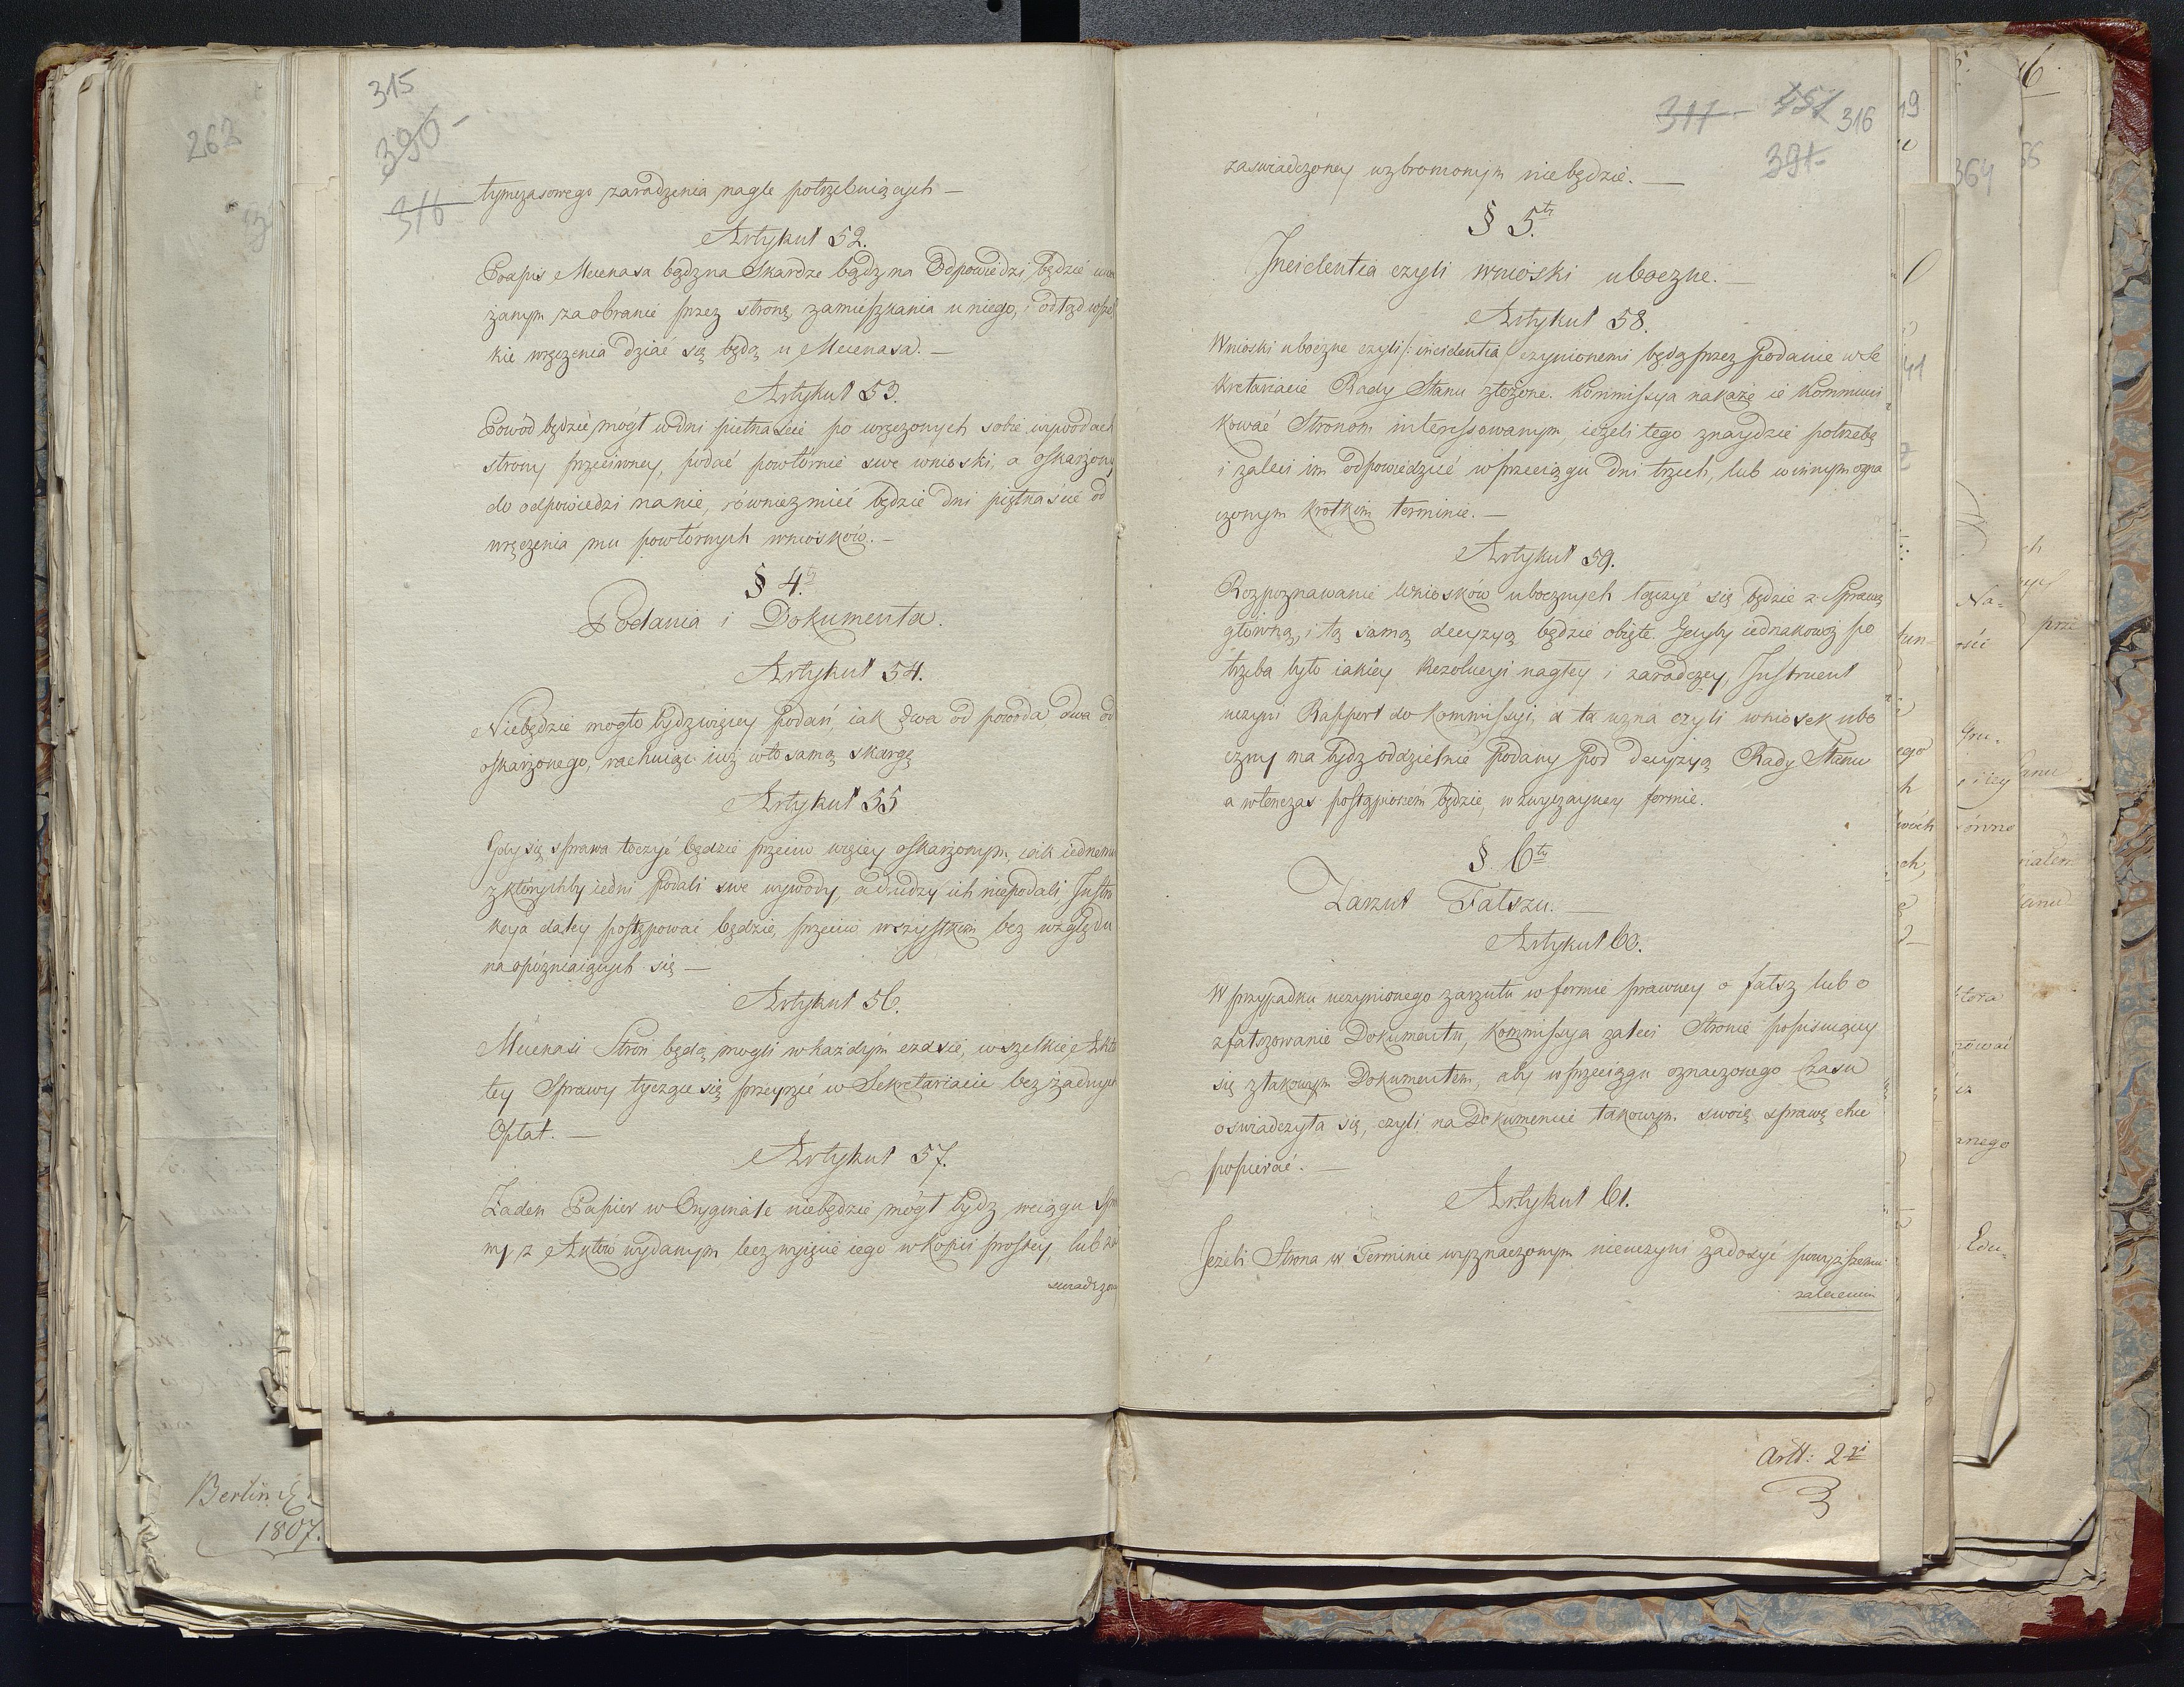 315
390
316
tymczasowego zaradzenia nagle potrzebuiących —
Artykuł 52.
Podpis Mecenasa bądz na Skardze bądz na Odpowiedzi, będzie
żanym za obranie przez stronę zamieszkania u niego, i odtąd wszel
kie wręczenia dziać się będą u Mecenasa. —
Artykuł 53.
Powód będzie mógł w dni piętnaście po wręczonych sobie wywodach
strony przeciwney, podać powtórnie swe wnioski, a oskarżony
do odpowiedzi na nie, równiez mieć będzie dni piętnaście od
wręczenia mu powtórnych wniosków. —
§ 4.
Podania i Dokumenta.
Artykuł 54.
Niebędzie mogło bydz więcey podań, iak dwa od powoda dwa od
oskarżonego, rachuiąc iuż w to samą skargę
Artykuł 55
Gdy się sprawa toczyć będzie przeciw więcey oskarżonym, iak iednemu
z którychby iedni podali swe wywody, a drudzy ich niepodali, Instru
kcya daley postępować będzie, przeciw wszystkim bez względu
na opózniaiących się —
Artykuł 56.
Mecenasi Stron będą mogli w każdym czasie, wszelkie Akta
tey Sprawy tyczące się przeyrzeć w Sekretariacie bez żadnych
Opłat. —
Artykuł 57.
Żaden Papier w Oryginale niebędzie mógł bydz w ciągu Spra
wy z Aktów wydanym lecz wyięcie iego w kopii prostey, lub za
swiadczon
317 351 316
391
zaswiadczoney wzbronionym niebędzie. —
§ 5.ty
Incidentia czyli wnioski uboczne. —
Artykuł 58.
Wnioski uboczne czyli /: incidentia czynionemi będą przez podanie w Se
kretariacie Rady Stanu złożone. Kommissya nakaże ie kommuni
kować Stronom interessowanym, ieżeli tego znaydzie potrzebę
i zaleci im odpowiedzieć w przeciągu dni trzech, lub w innym ozna
czonym krotkim terminie. —
Artykuł 59.
Rozpoznawanie wniosków ubocznych łączyć się będzie z Sprawą
główną, i tą samą decyzyą będzie obięte. Gdyby iednakowoż po
trzeba było iakiey Rezolucyi nagłey i zaradczey, Instruent
uczyni Rapport do Kommissyi, a ta uzna czyli wniosek ubo
czny ma bydz oddzielnie podany pod decyzyą Rady Stanu
a wtenczas postąpionem będzie, w zwyczayney formie.
§. 6ty
Zarzut Fałszu. —
Artykuł 60.
W przypadku uczynionego zarzutu w formie prawney o fałsz lub o
zfałszowanie Dokumentu, Kommissya zaleci Stronie popisuiącey
się z takowym Dokumentem, aby w przeciągu oznaczonego Czasu
oswiadczyła się, czyli na Dokumencie takowym swoię sprawę chce
popierać. —
Artykuł 61.
Jeżeli Strona w Terminie wyznaczonym nieuczyni zadosyć powyższemu
zaleceniu
Artt: 2
262
Berlin
1807.
364
Na-
Gru-
Edu-